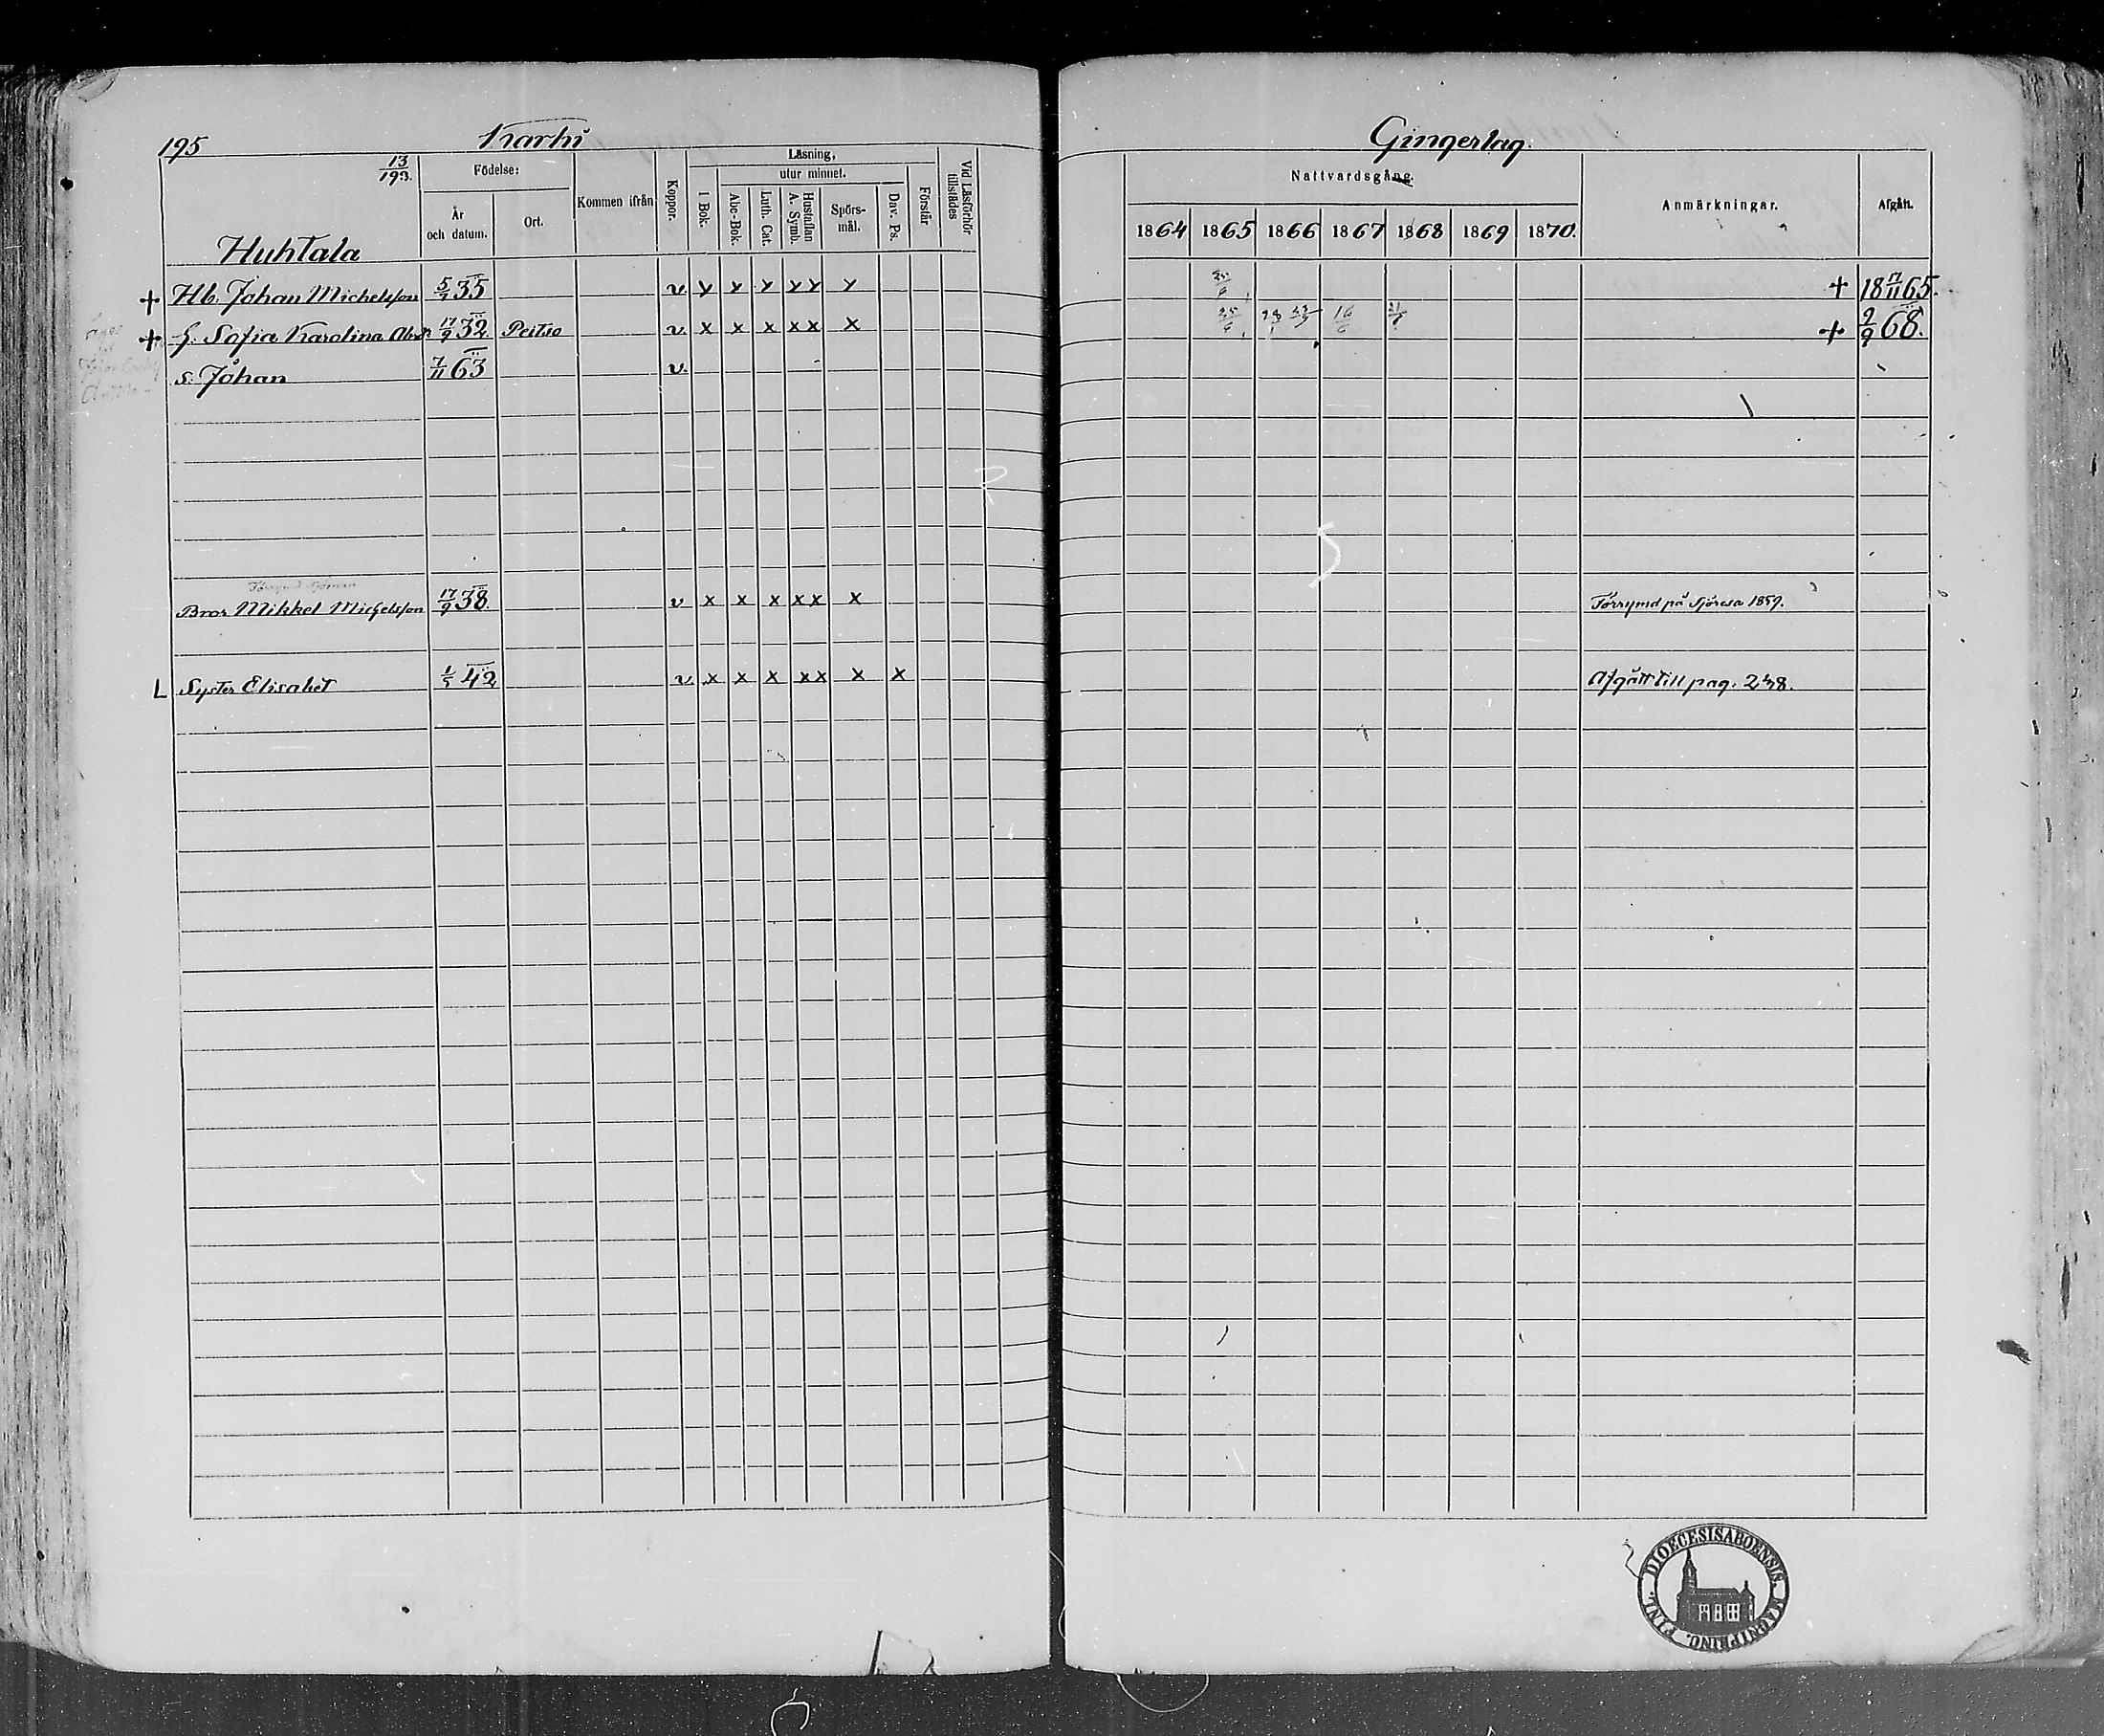 195 Karhi
13/193.
Födelse:
År och datum.
Ort.
Kommen ifrån
Koppor.
Läsning,
I Bok.
utur minnet.
Abc-Bok.
Luth. Cat.
Hustaflan A. Symb.
Spörs-mål.
Dav. Ps.
Förstår
Vid Läsförhör tillstädes
Huhtala
+ Hb. Johan Michelsson 5/7 35 v x x x x x x
+ h. Sofia Karolina 17/9 32 Peitso v x x x x x x
s. Johan 7/11 63 v
Bror Mikkel Michelsson 17/9 38. v x x x x x x
L Syster Elisabet 1/5 42 v x x x x x x x
Gingerlag.
Nattvardsgång.
1864 1865 1866 1867 1868 1869 1870.
Anmärkningar.
Afgått.
25/6 + 18 17/11 65.
25/6 16/6 + 2/9 68.
Förrymd på Sjöresa 1859.
Afgått till pag. 248.
DIOECESIS ABOENSIS. MAGNI PRINC. FINL.